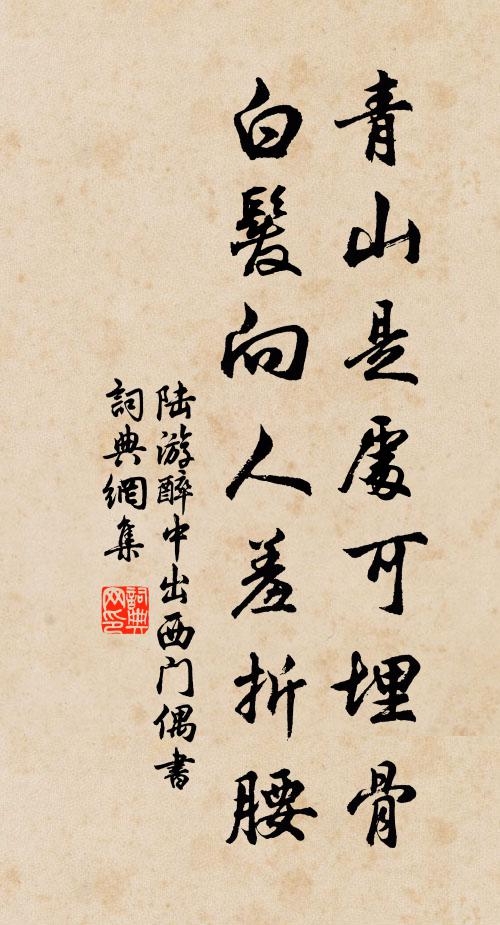 青山是處可埋骨
白髮向人羞折腰
陆游醉中出西门偶書
詞典網集
詞典网印